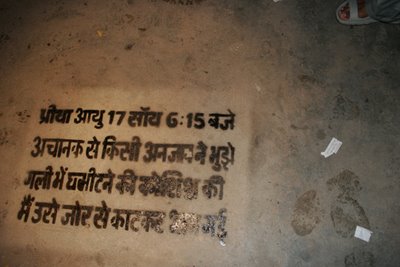 प्रीया आयु 17 सॉय 6:15 बजे
अचानक से किसी अनजान ने मुझे
गली में घसीटने की कोशिश की
मैं उसे जोर से काटकर भाग गई